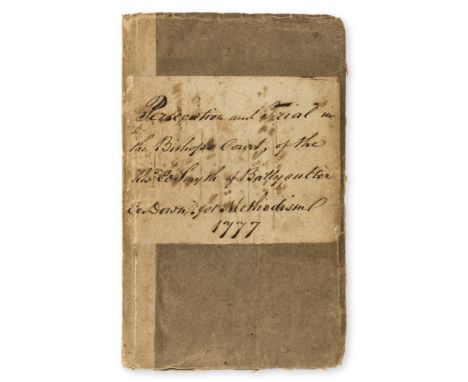 Persecution and Trial in
the Bishop's Court, of the
Revd. Ed Smyth of Ballyculter
Co Down, for Methodism
1777